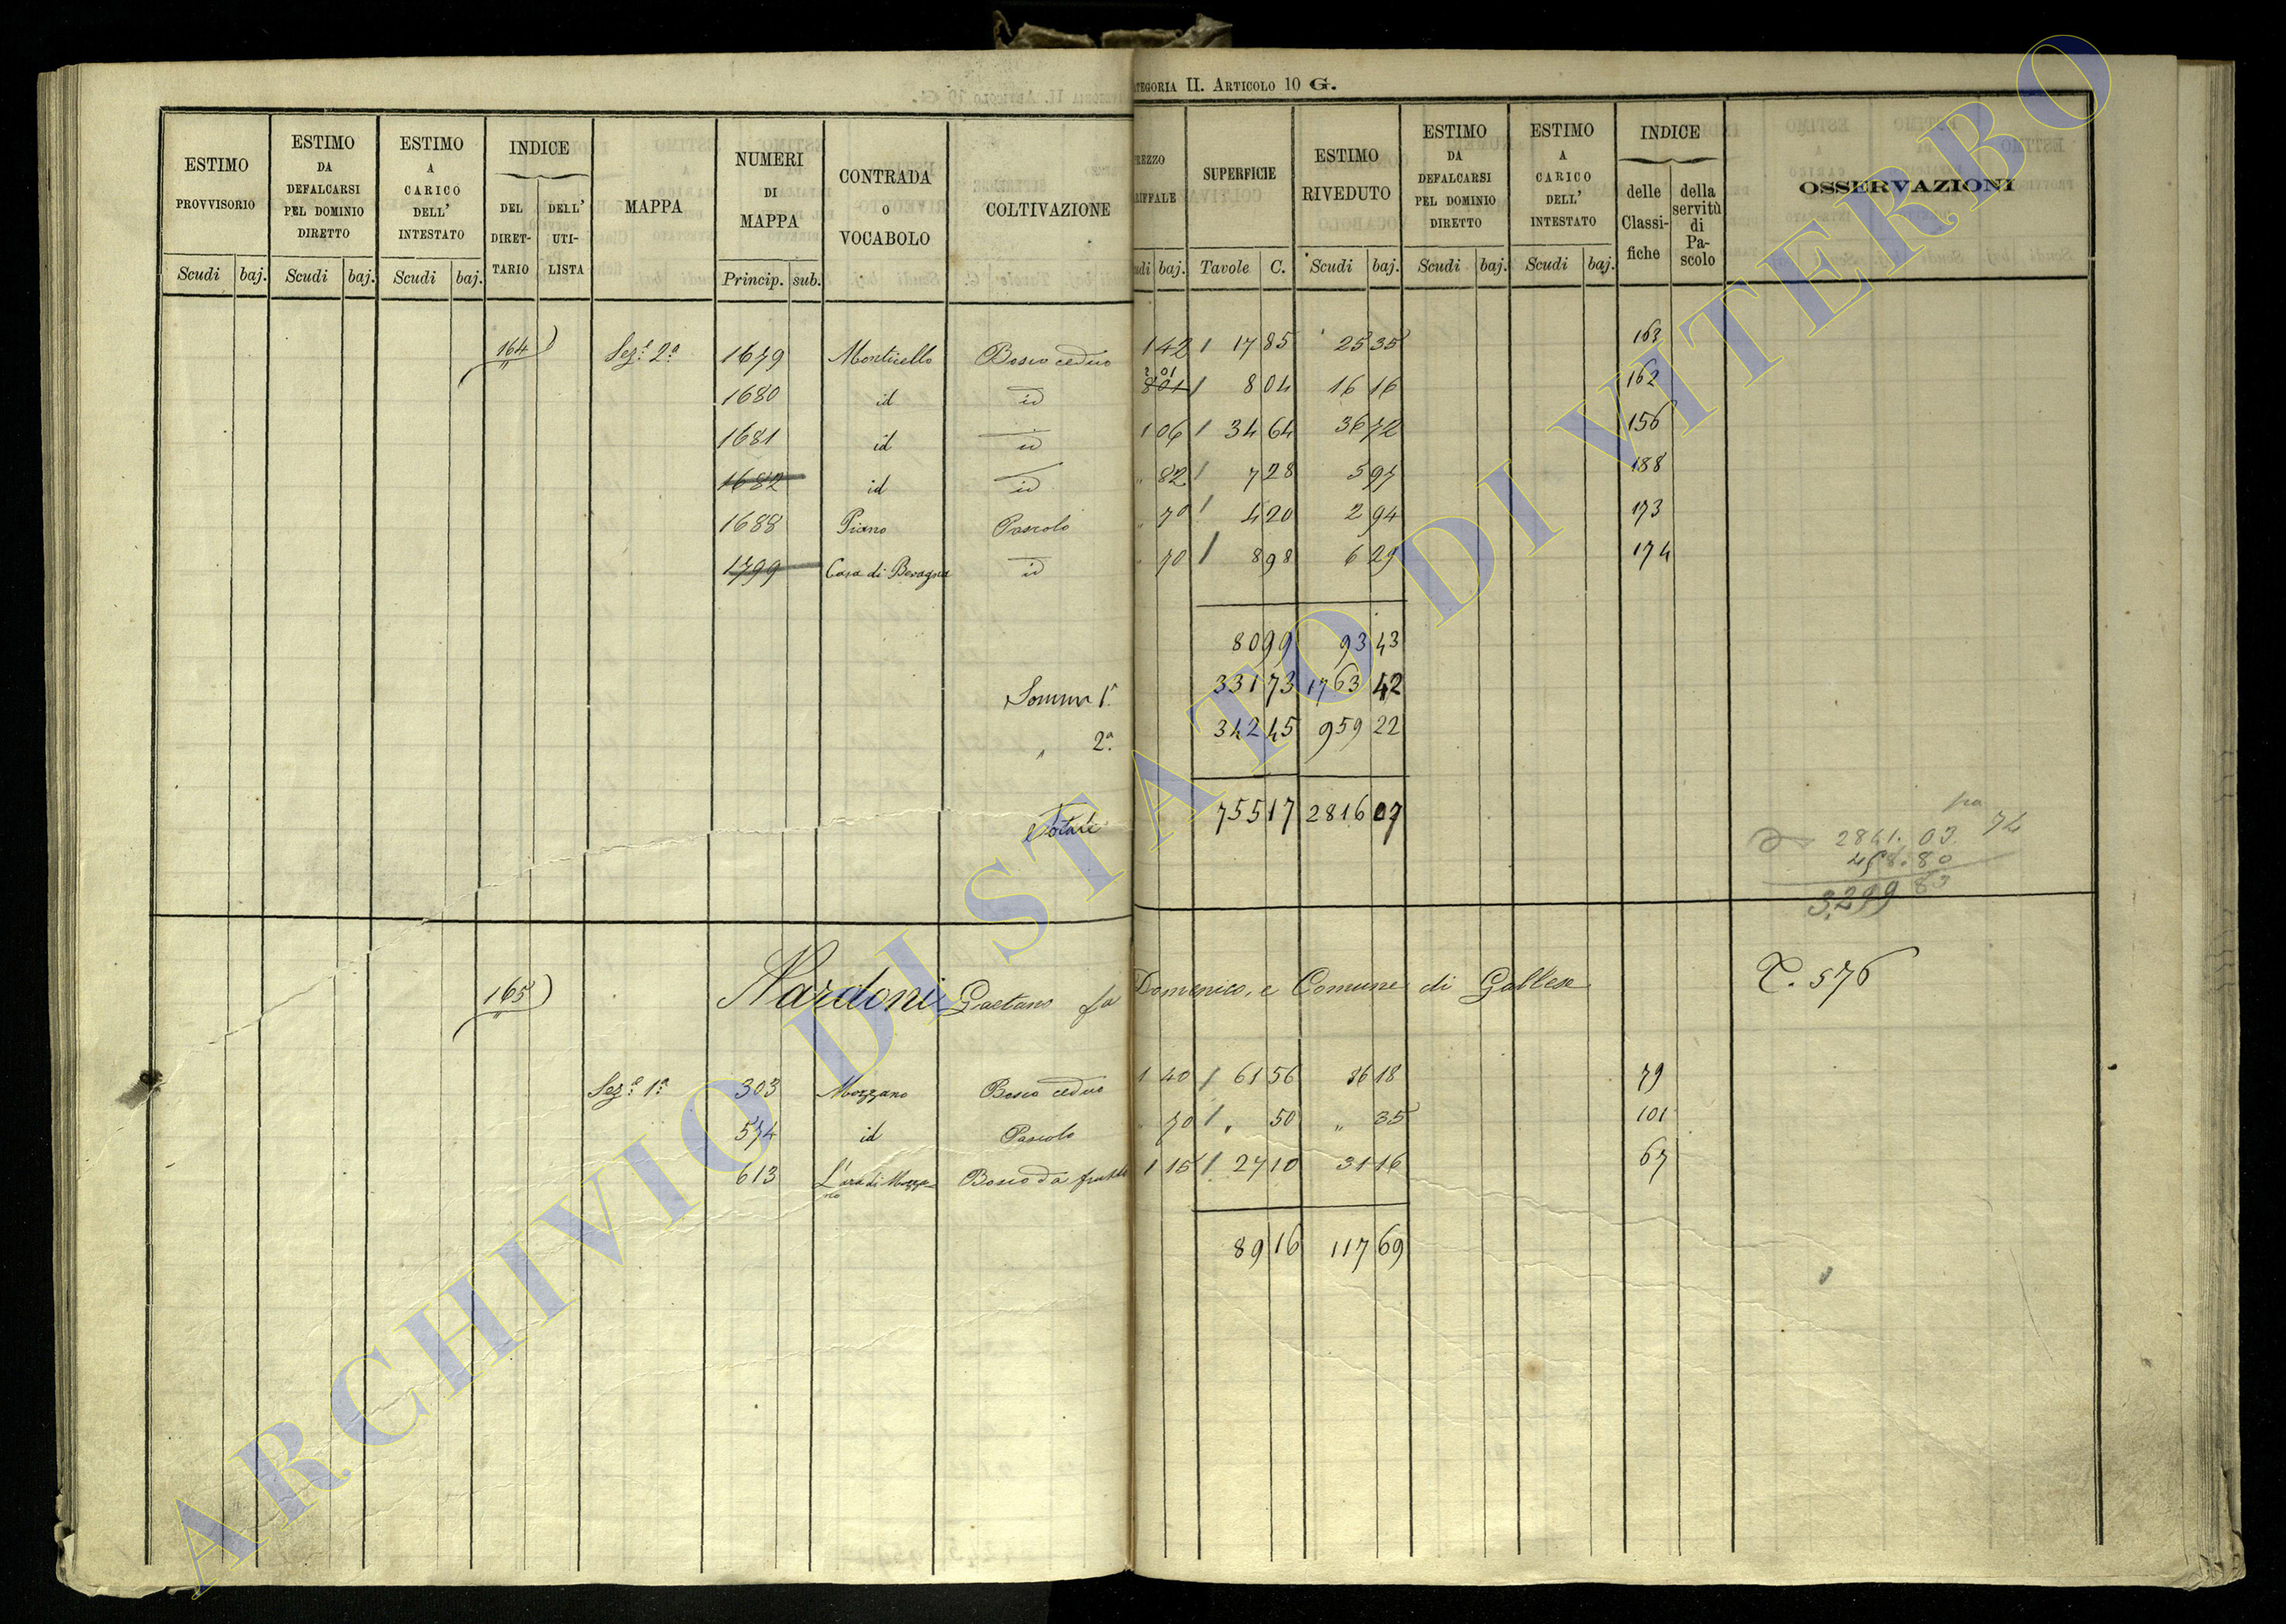 ATEGORIA II. ARTICOLO 10 G.
ESTIMO PROVVISORIO Scudi baj.
ESTIMO DA DEFALCARSI PEL DOMINIO DIRETTO Scudi baj.
ESTIMO A CARICO DELL' INTESTATO Scudi baj.
INDICE DEL DIRET- TARIO DELL' UTI- LISTA
MAPPA
NUMERI DI MAPPA Princip. sub.
CONTRADA O VOCABOLO
COLTIVAZIONE
REZZO RIFFALE udi baj.
SUPERFICIE Tavole C.
ESTIMO RIVEDUTO Scudi baj.
ESTIMO DA DEFALCARSI PEL DOMINIO DIRETTO Scudi baj.
ESTIMO A CARICO DELL' INTESTATO Scudi baj.
INDICE delle Classi- fiche della servitù di Pa- scolo
OSSERVAZIONI
164) Sez.e 2a 1679 Monticello Bosco ceduo 1 42 / 17 85 25 35 163
1680 id id 2 01 801 / 8 04 16 16 162
1681 id id 1 06 / 34 64 36 72 156
1682 id id " 82 / 7 28 5 97 188
1688 Piano Pascolo " 70 / 4 20 2 94 173
1799 Casa di Bevagna id " 70 / 8 98 6 29 174
80 99 93 43
Somma 1a 331 73 1763 42
" 2a 342 45 959 22
Totale 755 17 2816 07
2841. 03 74
458. 80
3299 83
165) Nardoni Gaetano fu Domenico, e Comune di Gallese T. 576
Sez.e 1a 303 Mozzano Bosco ceduo 1 40 / 61 56 86 18 79
574 id Pascolo " 70 / " 50 " 35 101
613 L'ara di Mozza= no Bosco da frutto 1 15 / 27 10 31 16 67
89 16 117 69
ARCHIVIO DI STATO DI VITERBO